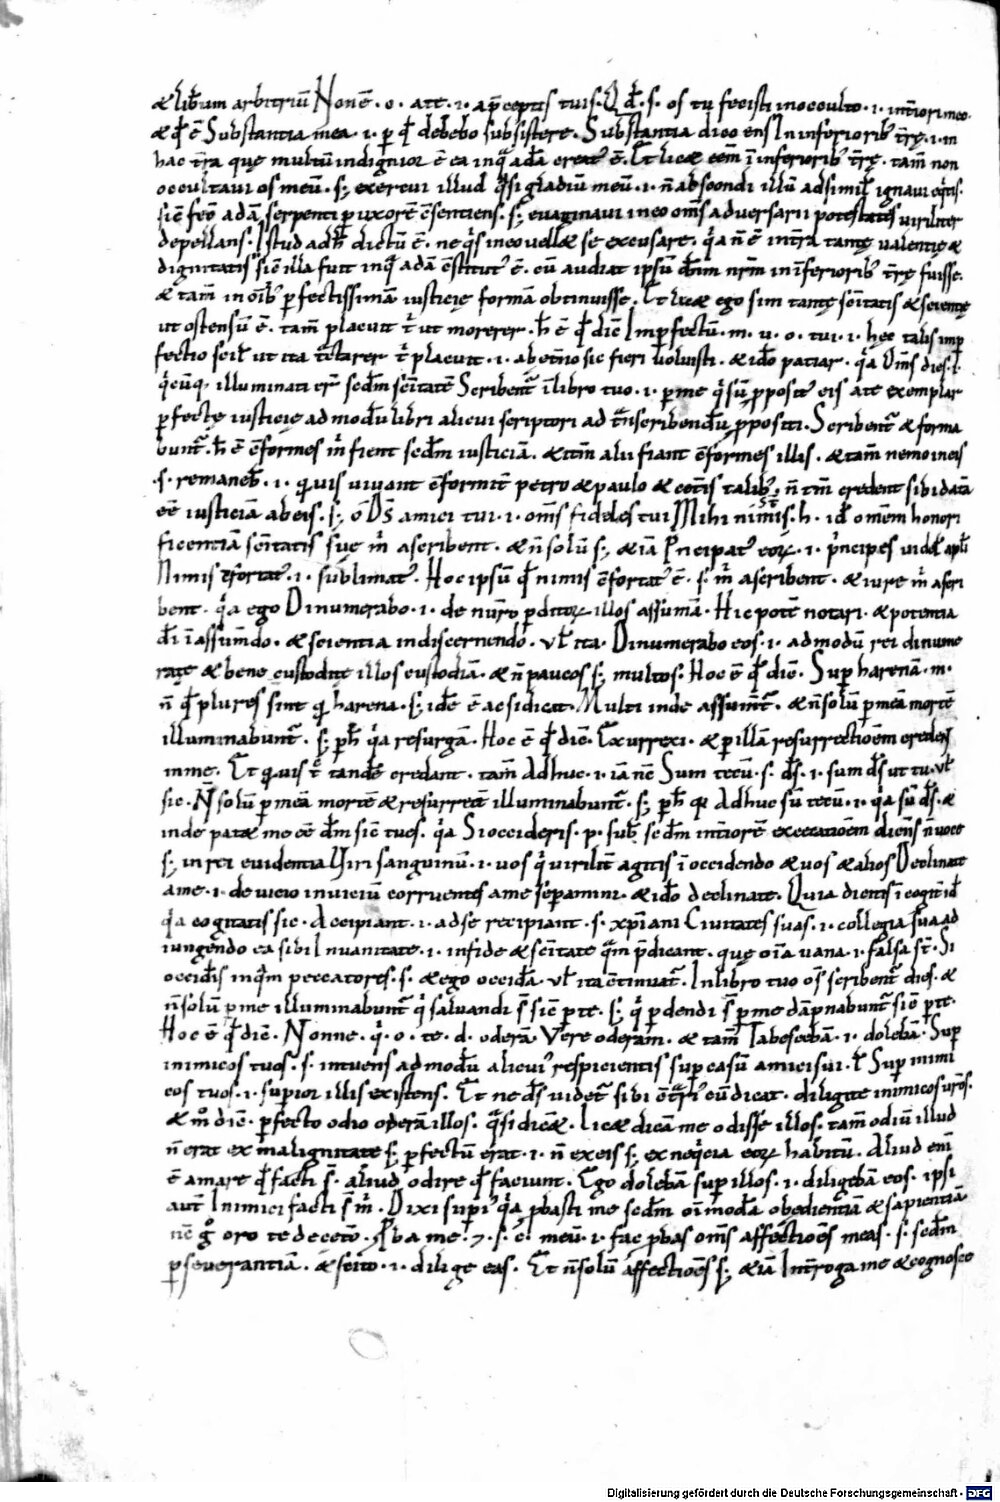 & lib̄um arbitriū Non ē · o · a te · i · a p̄ceptis tuis · Qđ · s · os tu fecisti in occulto · i · int̄iori meo ·
& qđ ē Substantia mea · i · p qđ debebo subsistere · Substantia dico ens In inferiorib; t̄rę · i · in
hac t̄ra quę multū indignior ē ea in qua adā creat; ē · Et lic& eēm ī inferiorib; t̄rę · tam̄ non
occultaui os meū · s; exercui illud q̄si gladiū meū · i · n̄ abscondi illū ad simil ignaui eq̄tis ·
sic̄ fec̄ adā serpenti p uxorē c̄sentiens · s; euaginaui in eo om̄s aduersarii potestates uiriliter
depellans · Istud adh dictū ē · ne q̇s in eo uell& se excusare · q̇a n̄ ē int̄ra tantę ualentię &
dignitatis sic̄ illa fuit in q̄ adā c̄stitut; ē · cū audiat ipsū dn̄m nr̄m in īferiorib; t̄rę fuisse ·
& tam̄ in oīb; pfectissimā iusticię formā obtinuisse · Et lic& ego sim tantę sc̄itatis & scientię
ut ostensū ē · tam̄ placuit t̄ ut morerer · h ē qđ dic̄ Inpfectū · m · u · o · tui · i · hec talis imp
fectio scil ut ita t̄ctarer t̄ placuit · i · ab et̄no sic fieri uoluisti · & ido patiar · q̇a Om̄s dies · i ·
q̇cūq; illuminati er̄ scđm sc̄itatē Scribent̄ ī libro tuo · i · p me q̇ sū p̄posit; eis a te exemplar
pfectę iusticię ad modū libri alicui scriptori ad t̄nscribendū p̄positi · Scribent̄ & forma
bunt̄ · h ē c̄formes m̄ fient scđm iusticiā · & itm̄ alii fiant c̄formes illis · & tam̄ nemo in eis
· s · remaneb · i · q̄uis uiuant c̄formit̄ petro & paulo & cet̄is talib; n̄ tm̄ credent sibi datā
eē iusticiā ab eis · s; o Ds̄ amici tui · i · om̄s fideles tui Mihi nimis · h · id omem honori
ficentiā sc̄itatis suę m̄ ascribent · & n̄ solū s; & iā P̄ncipat; eoꝝ · i · p̄ncipes uidel apłi
Nimis c̄fortat; · i · sublimat; · Hoc ipsū qđ nimis c̄fortat; ē · s · m̄ ascribent · & iure m̄ ascri
bent · q̇a ego Dinumerabo · i · de num̄o pditoꝝ illos assumā · Hic potē notari · & potentia
dī ī assumdo · & scientia in discernendo · uł ita · Dinumerabo eos · i · ad modū rei dinume
ratę & bene custoditę illos custodiā · & n̄ paucos s; multos · Hoc ē qđ dic̄ · Sup harenā · m ·
n̄ qđ plures sint q̄ harena · s; idē ē ac si dicat · Multi inde assumt̄ · & n̄ solū p meā mortē
illuminabunt̄ · s; ph q̇a resurgā · Hoc ē qđ dic̄ · Exurrexi · & p illā resurrectioēm credes
in me · Et q̄uis t̄ tandē credant · tam̄ Adhuc · i · iā nc̄ Sum tecū · s · ds̄ · i · sum ds̄ ut tu · uł
sic · N̄ solū p meā mortē & resurrect̄ illuminabunt̄ · s; ph q Adhuc sū tecū · i · q̇a sū ds̄ · &
inde pat& me eē dm̄ sic̄ tu es · q̇a Si occideris · p · sub scđm int̄iorē excecatioēm dicns n̄ uoce
s; in rei euidentia Uiri sanguinū · i · uos q̇ uirilit̄ agitis ī occidendo & uos & alios Declinate
a me · i · de uicio in uiciū corruentes a me sepamini · & ido declinate · Quia dicitis ī cogit id
q̇a cogitatis sic · Accipiant · i · ad se recipiant · s · xp̄iani Ciuitates suas · i · collegia sua ad
iungendo ea sibi In uanitate · i · in fide & sc̄itate q̄m p̄dicant · quę oīa uana · i · falsa s̄t · Si
occidis inqm̄ peccatores · s · & ego occidā · uł ita c̄tinuat̄ · In libro tuo os̄ scribent̄ dies · &
n̄ solū p me illuminabunt̄ q̇ saluandi s̄t sic̄ p te · s; q̇ pdendi s̄t p me dāpnabunt̄ sic̄ p te ·
Hoc ē qđ dic̄ · Nonne · q̇ · o · te · d · oderā Vere oderam · & tam̄ Tabescebā · i · dolebā · Sup
inimicos tuos · s · intuens ad modū alicui; respicientis sup casū amici sui · ł Sup inimi
cos tuos · i · supior illis existens · Et ne ds̄ uidet̄ sibi c̄t̄ri; cū dicat · diligite inimicos ur̄os ·
& m̊ dic̄ · pfecto odio oderā illos · q̄si dic& · Lic& dicā me odisse illos · tam̄ odiū illud
n̄ erat ex malignitate s; pfectū erat · i · n̄ ex eis s; ex neq̇cia eoꝝ habitū · Aliud enī
ē amare qđ facti s̄t · aliud odire qđ faciunt · Ego dolebā sup illos · i · diligebā eos · ipsi
aut̄ Inimici facti s̄t m̄ · Dixi supi; q̇a p̄basti me scđm oīmodā obedientiā & sapientiā
nc̄ g̊ oro te de cet̄o · P̄ba me · ⁊ · s · c · meū · i · fac p̄bas om̄s affectioēs meas · s · scđm
pseuerantiā · & scito · i · dilige eas · Et n̄ solū affectioēs s; & iā Int̄roga me & cognosce
Digitalisierung gefördert durch die Deutsche Forschungsgemeinschaft - DFG